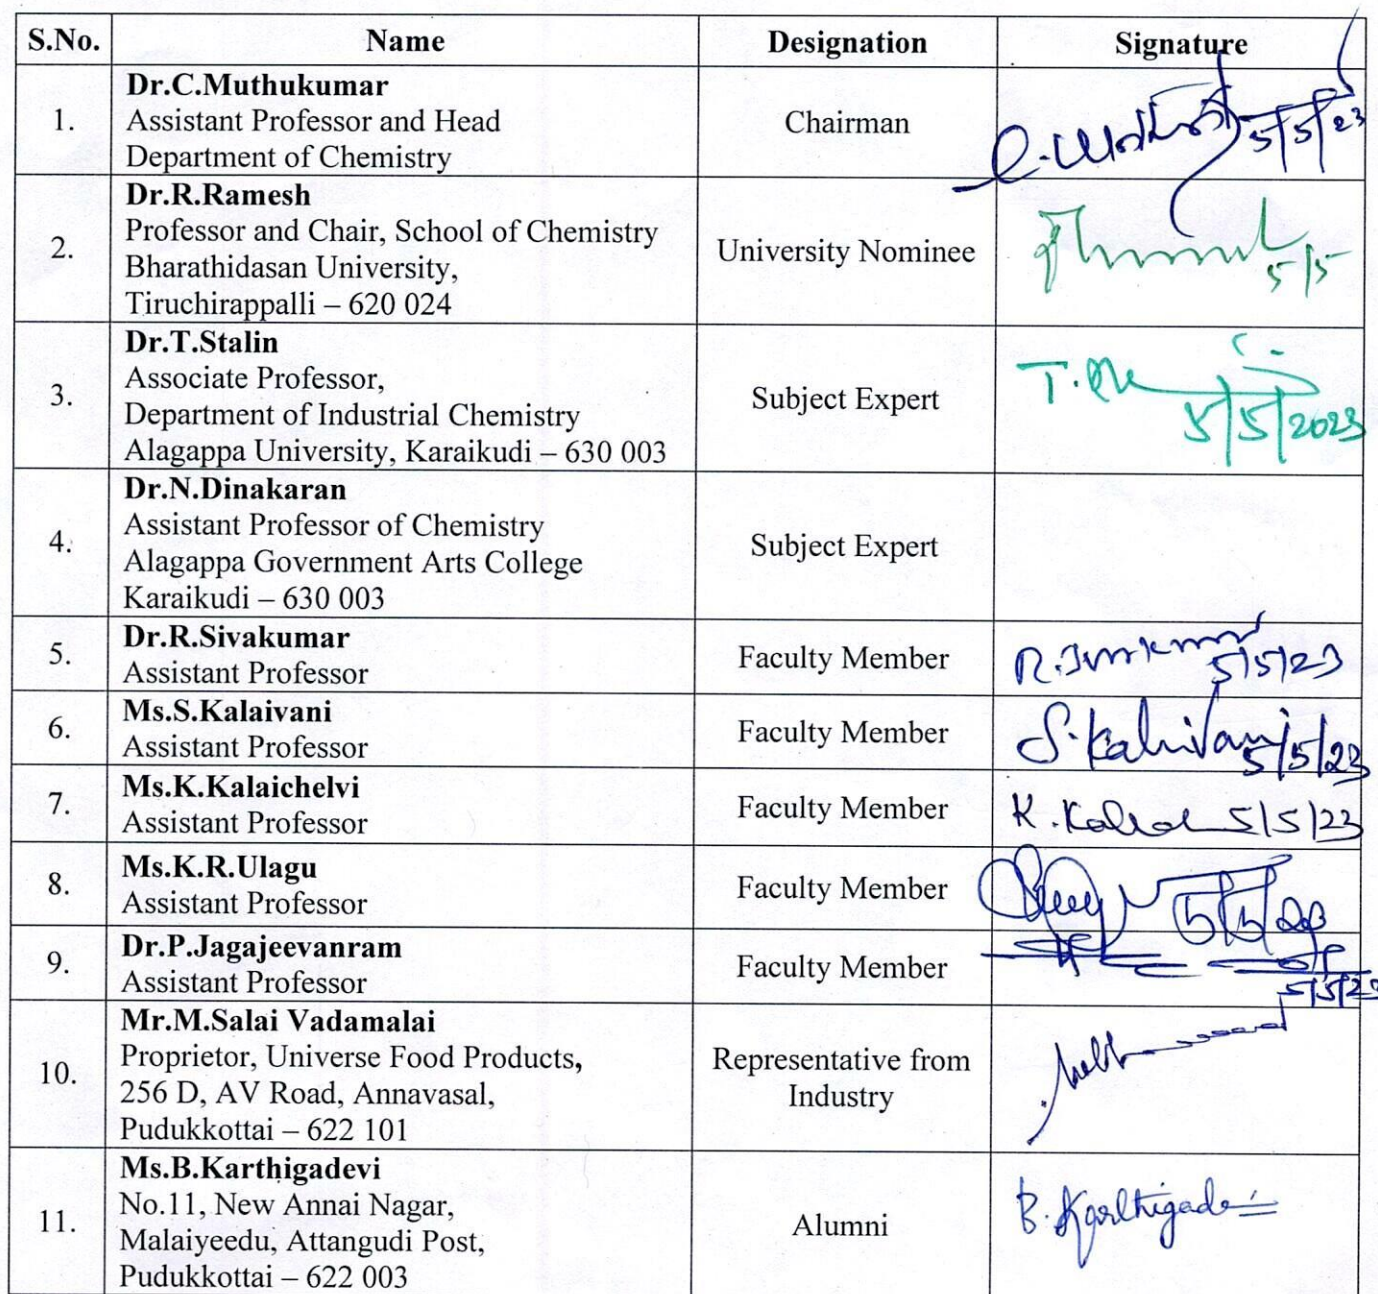 S.No. Name Designation Signature
1. Dr.C.Muthukumar
Assistant Professor and Head
Department of Chemistry
Chairman
5/5/23
2. Dr.R.Ramesh
Professor and Chair, School of Chemistry
Bharathidasan University,
Tiruchirappalli – 620 024
University Nominee
5/5
3. Dr.T.Stalin
Associate Professor,
Department of Industrial Chemistry
Alagappa University, Karaikudi – 630 003
Subject Expert
5/5/2023
4. Dr.N.Dinakaran
Assistant Professor of Chemistry
Alagappa Government Arts College
Karaikudi – 630 003
Subject Expert
5. Dr.R.Sivakumar
Assistant Professor
Faculty Member
5/5/23
6. Ms.S.Kalaivani
Assistant Professor
Faculty Member
S.Kalaivani 5/5/23
7. Ms.K.Kalaichelvi
Assistant Professor
Faculty Member
5/5/23
8. Ms.K.R.Ulagu
Assistant Professor
Faculty Member
5/5/23
9. Dr.P.Jagajeevanram
Assistant Professor
Faculty Member
5/5/23
10. Mr.M.Salai Vadamalai
Proprietor, Universe Food Products,
256 D, AV Road, Annavasal,
Pudukkottai – 622 101
Representative from
Industry
11. Ms.B.Karthigadevi
No.11, New Annai Nagar,
Malaiyeedu, Attangudi Post,
Pudukkottai – 622 003
Alumni
B.Karthigade